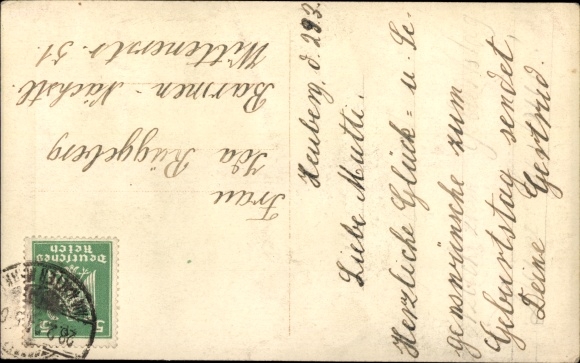 Heuberg, d. 29.3.
Liebe Mutti.
Herzliche Glück- u. Se-
genswünsche zum
Geburtstag sendet
Deine Gertrud.
Frau
Ida Rüggeberg
Barmen - Nächstb.
Wittenerstr. 51.
Deutsches
Reich
5